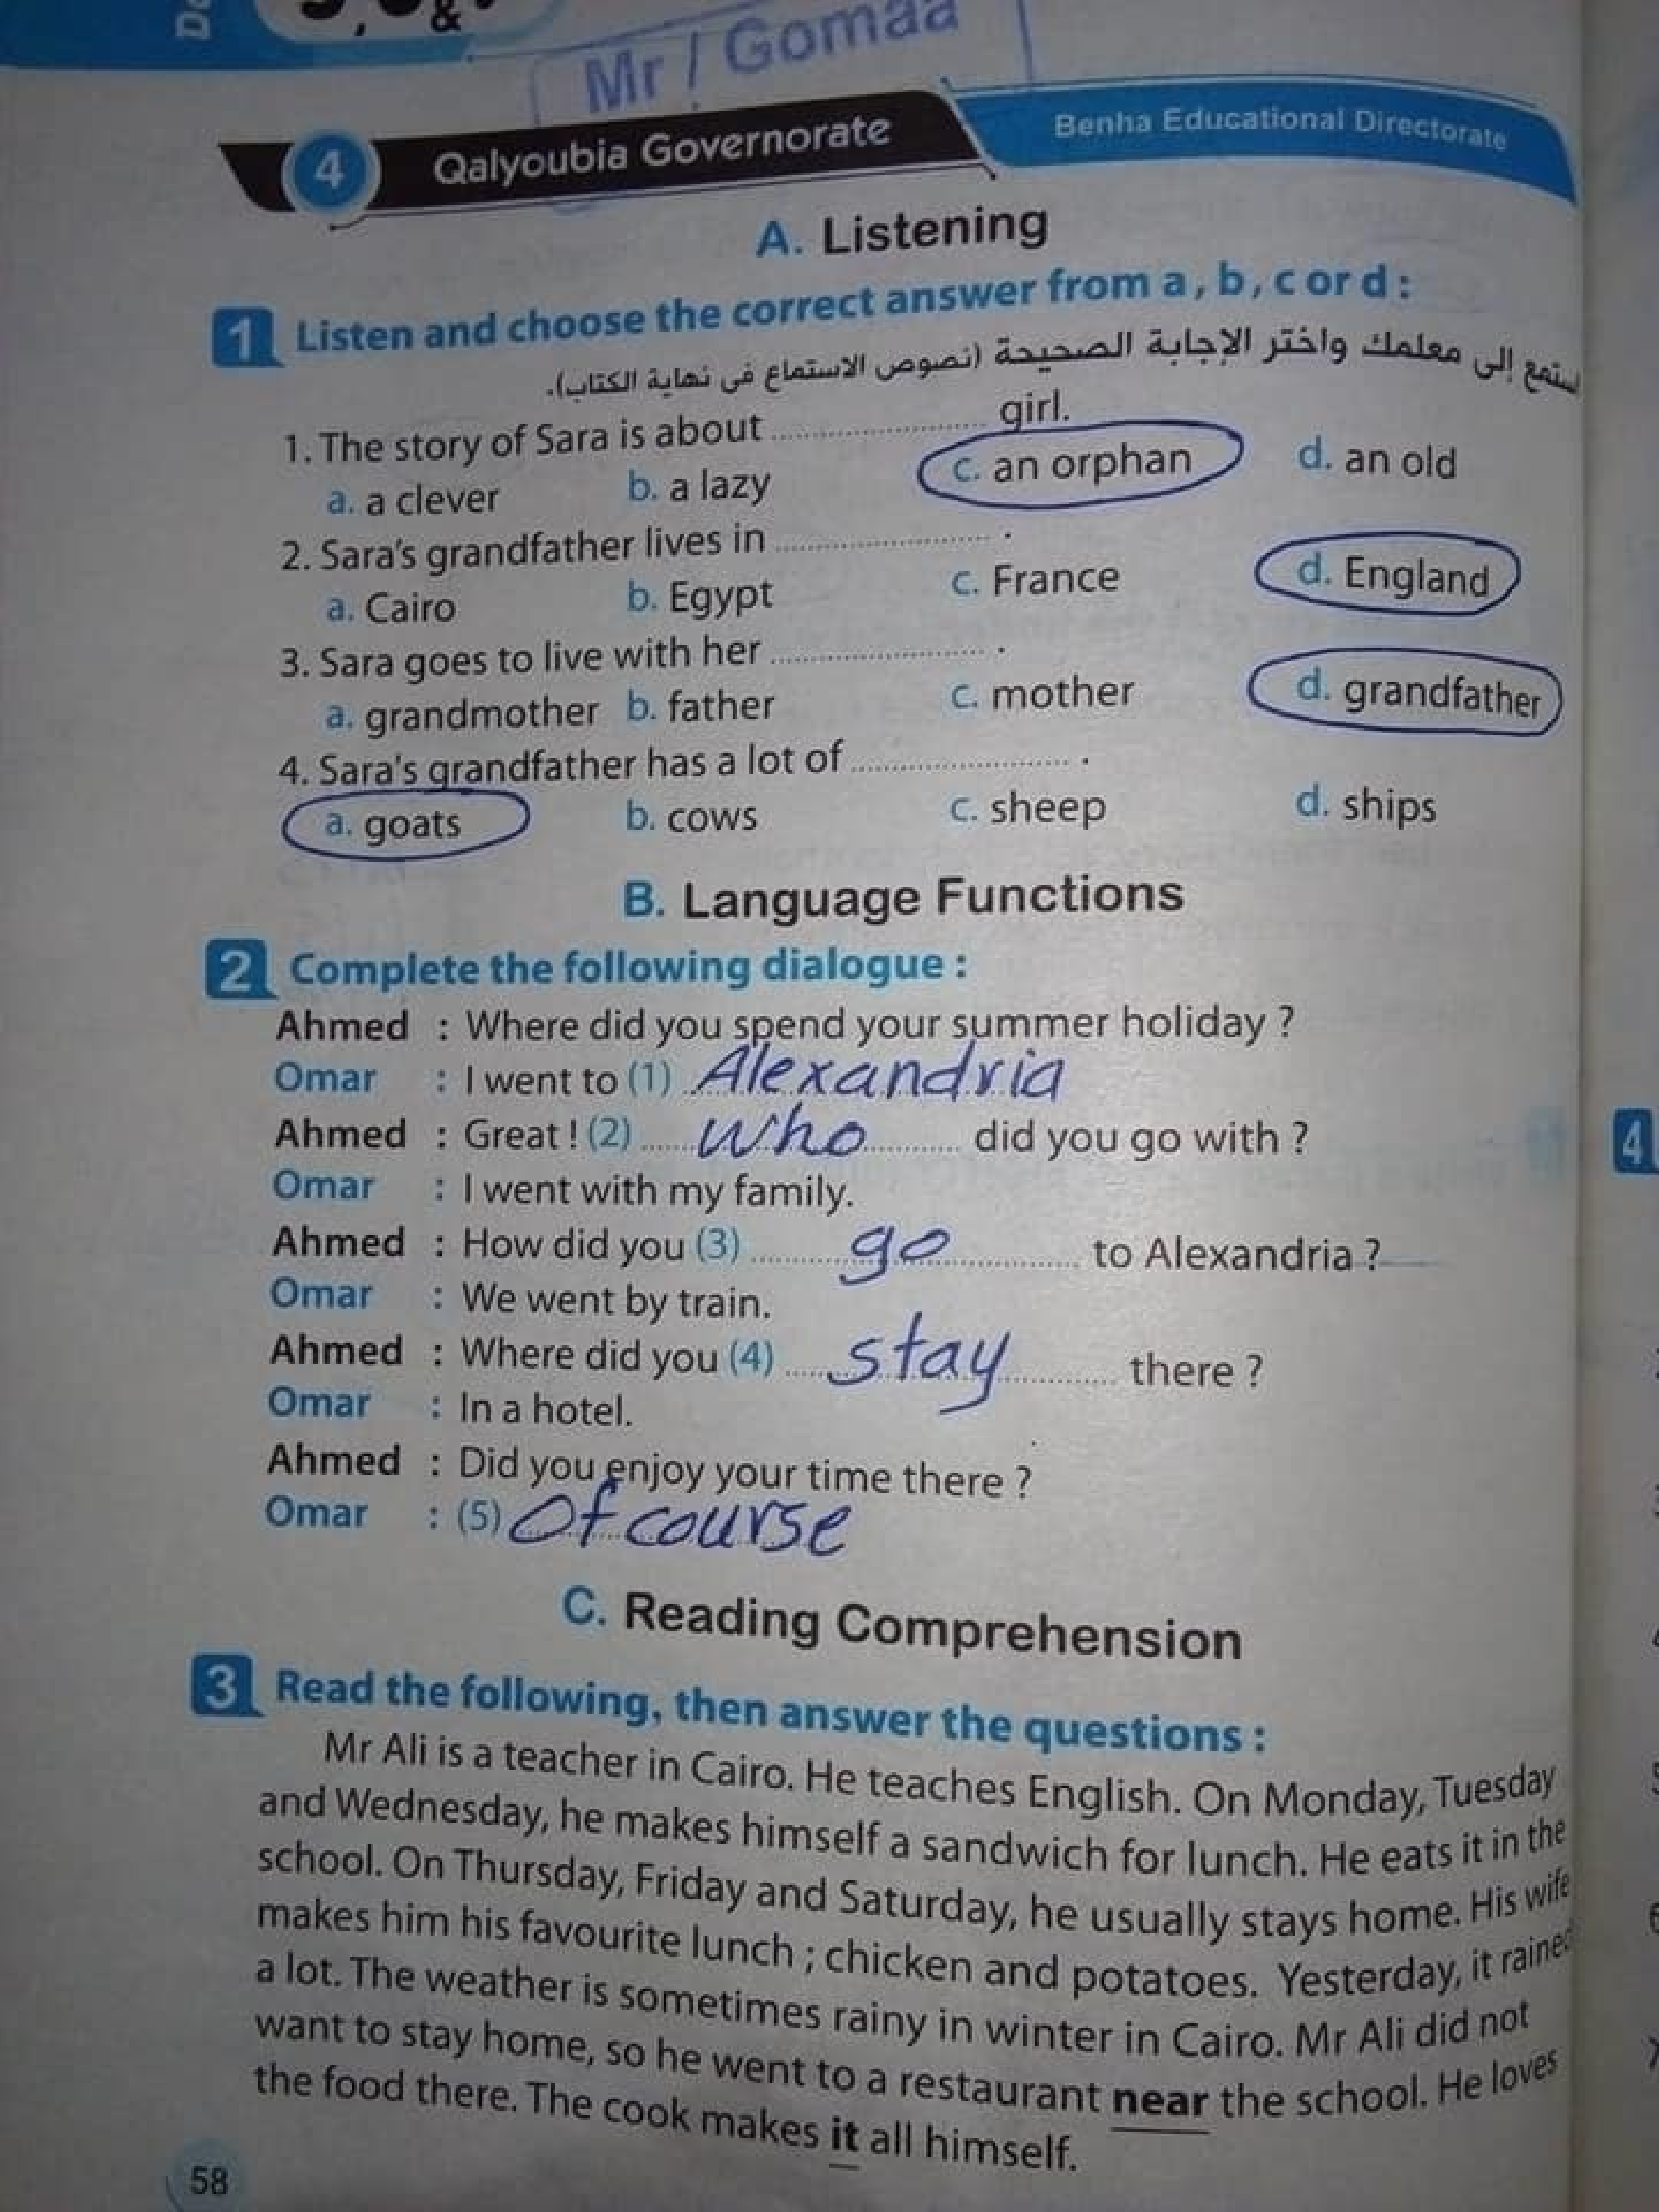 &
Mr / Gomaa
4 Qalyoubia Governorate Benha Educational Directorate
A. Listening
1 Listen and choose the correct answer from a , b , c or d :
استمع إلى معلمك واختر الإجابة الصحيحة (نصوص الاستماع فى نهاية الكتاب).
1. The story of Sara is about .................... girl.
a. a clever b. a lazy c. an orphan d. an old
2. Sara's grandfather lives in .................... .
a. Cairo b. Egypt c. France d. England
3. Sara goes to live with her .................... .
a. grandmother b. father c. mother d. grandfather
4. Sara's grandfather has a lot of .................... .
a. goats b. cows c. sheep d. ships
B. Language Functions
2 Complete the following dialogue :
Ahmed : Where did you spend your summer holiday ?
Omar : I went to (1) Alexandria
Ahmed : Great ! (2) who did you go with ?
Omar : I went with my family.
Ahmed : How did you (3) go to Alexandria ?
Omar : We went by train.
Ahmed : Where did you (4) stay there ?
Omar : In a hotel.
Ahmed : Did you enjoy your time there ?
Omar : (5) Of course
C. Reading Comprehension
3 Read the following, then answer the questions :
Mr Ali is a teacher in Cairo. He teaches English. On Monday, Tuesday
and Wednesday, he makes himself a sandwich for lunch. He eats it in the
school. On Thursday, Friday and Saturday, he usually stays home. His wife
makes him his favourite lunch ; chicken and potatoes. Yesterday, it rained
a lot. The weather is sometimes rainy in winter in Cairo. Mr Ali did not
want to stay home, so he went to a restaurant near the school. He loves
the food there. The cook makes it all himself.
58
4